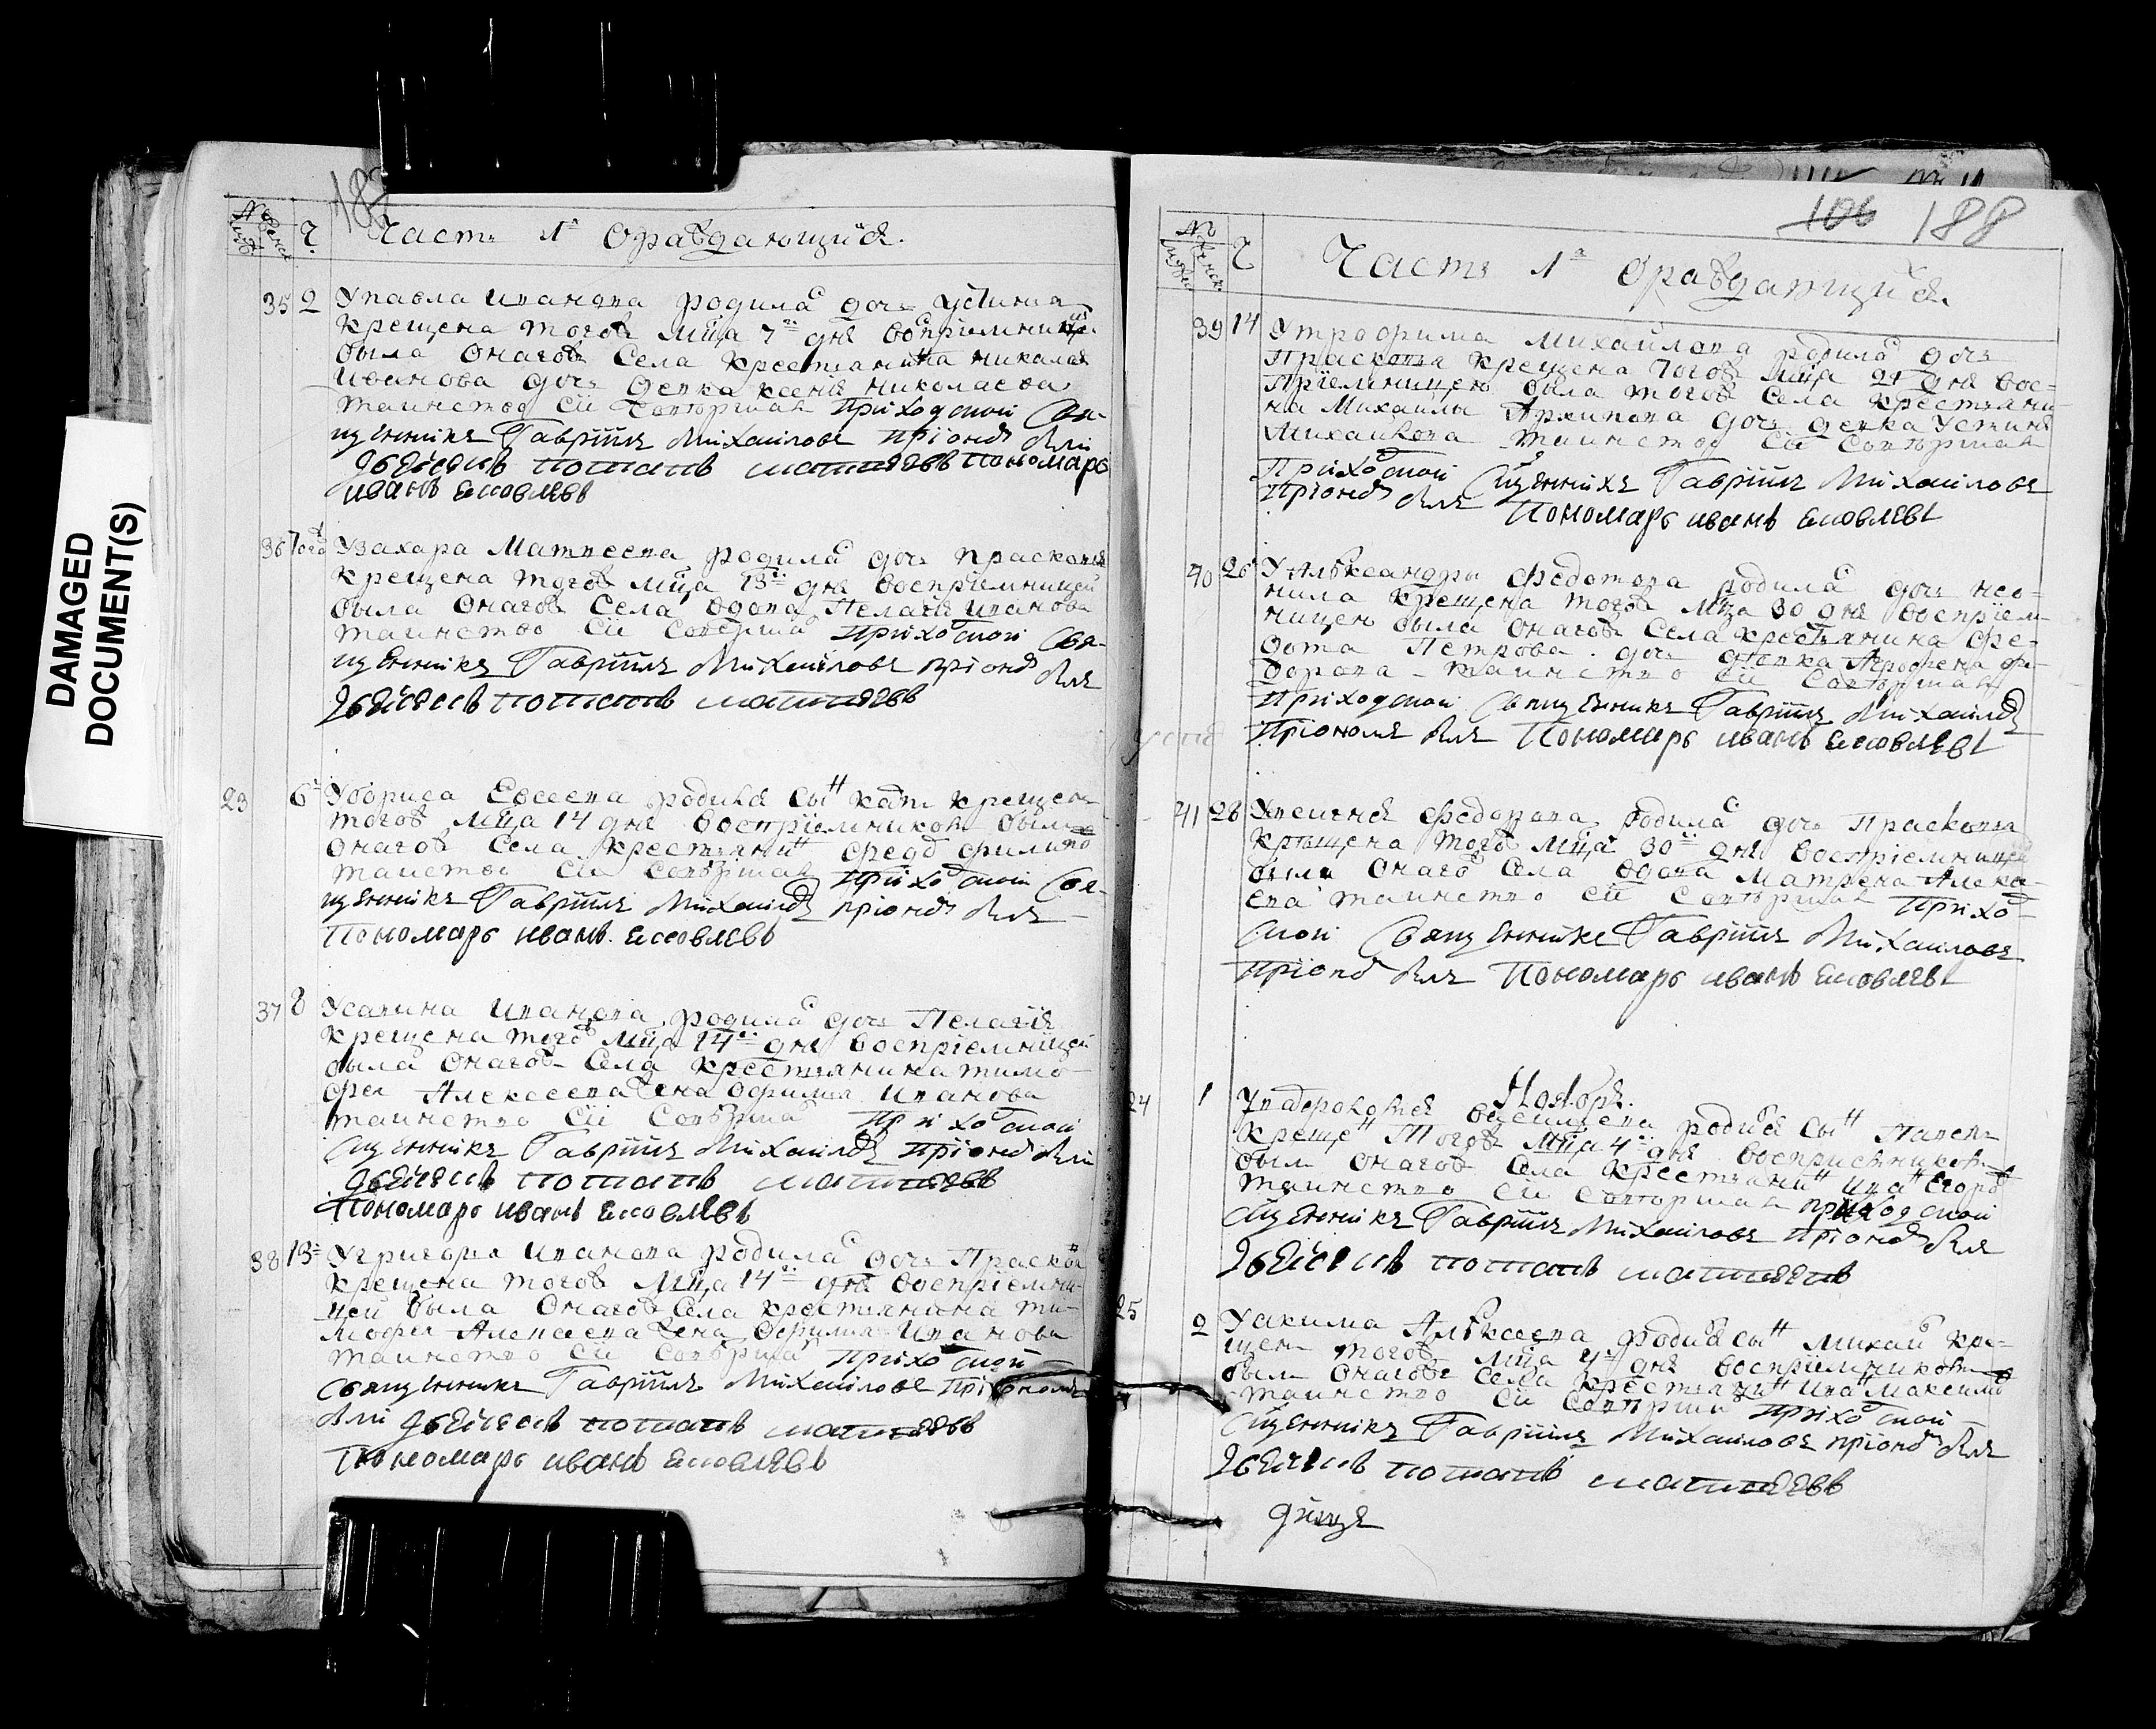 DAMAGED
DOCUMENT(S)
187
Часть 1я ораждающихся.
35 2 У павла иванова родилас дочь Устиния
крещена тогож мца 7го дня восприемницей
была онагож села крестьянина николая
иванова дочь девка ксения николаева
таинство сие совершал приходской свя-
щенникъ Гавриилъ Михаиловъ при ономъ были
потапъ матвѣевъ пономарь
иванъ яковлевъ
36 того У захара Матвеева родилас дочь прасковья
крещена тогож мца 13го дня восприемницей
была онагож села вдова Пелагея иванова
таинство сие совершал приходской свя-
щенникъ Гавриилъ Михаиловъ при ономъ былъ
потапъ матвѣевъ
23 6 У бориса Евсеева родился сын крещен
тогож мца 14 дня восприемником был
онагож села крестьянин
таинство сие совершал приходской свя-
щенникъ Гавриилъ Михаиловъ при ономъ былъ
Пономарь иванъ яковлевъ
37 8 У савина иванова родилас дочь Пелагея
крещена тогож мца 14го дня восприемницей
была онагож села крестьянина тимо-
фея Алексеева жена иванова
таинство сие совершал приходской
священникъ Гавриилъ Михаиловъ при ономъ были
потапъ матвѣевъ
Пономарь иванъ яковлевъ
38 13 У григорья иванова родилас дочь Прасковья
крещена тогож мца 14го дня восприемни-
цей была онагож села крестьянина ти-
мофея Алексеева жена иванова
таинство сие совершал приходской
священникъ Гавриилъ Михаиловъ при ономъ
были потапъ матвѣевъ
Пономарь иванъ яковлевъ
106 188
Часть 1я ораждающихся.
39 14 У трофима Михайлова родилас дочь
Прасковья крещена тогож мца 21 дня вос-
приемницею была тогож села крестьяни-
на Михайлы Архипова дочь девка Устинья
Михайлова таинство сие совершал
Приходской священникъ Гавриилъ Михаиловъ
При ономъ былъ Пономарь иванъ яковлевъ
40 26 У Александры Федотова родилас дочь нео-
нила крещена тогож мца 30 дня восприем-
ницею была онагож села крестьянина фе-
дота Петрова дочь девка
таинство сие совершал
Приходской священникъ Гавриилъ Михаиловъ
При ономъ былъ Пономарь иванъ яковлевъ
41 28 федорова родилас дочь Прасковья
крещена тогож мца 30 дня восприемницей
была онагож села вдова Матрена Алексе-
ева таинство сие совершал Прихо-
дской священникъ Гавриилъ Михаиловъ
При ономъ былъ Пономарь иванъ яковлевъ
Ноября.
24 1 родился сын
крещен тогож мца 4го дня восприемником
был онагож села крестьянин иван Егоров
таинство сие совершал приходской
священникъ Гавриилъ Михаиловъ при ономъ былъ
потапъ матвѣевъ
25 2 У акима Алексеева родился сын михаил кре-
щен тогож мца 4 дня восприемником
был онагож села крестьянин иван Максимов
таинство сие совершал приходской
священникъ Гавриилъ Михаиловъ при ономъ былъ
потапъ матвѣевъ